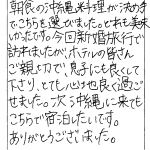 朝食の沖縄料理が決め手
でこちらを選びました。どれも美味し
いかったです。今回新婚旅行で
訪れましたが、ホテルの皆さん
ご親切で、息子にも良くして
下さり、とても心地良く過ご
せました。次沖縄に来ても
こちらで宿泊したいです。
ありがとうございました。